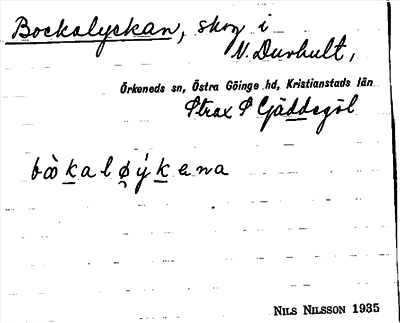 Bockalyckan, skog i
N. Duvhult,
Örkeneds sn, Östra Göinge hd, Kristianstads län
Strax S Gäddegöl
bòkaløýkana
NILS NILSSON 1935